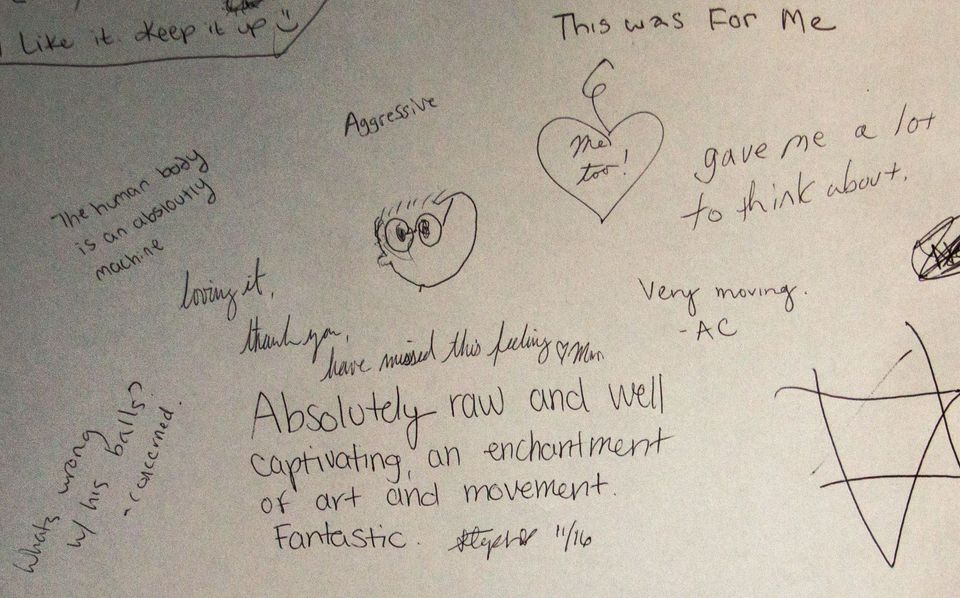 I Like it. Keep it up
This was For Me
Me
too!
Aggressive
gave me a lot
to think about.
The human body
is an absloutly
machine
loving it,
thank you,
have missed this feeling
Very moving.
-AC
Absolutely raw and well
captivating, an enchantment
of art and movement.
Fantastic. 11/16
Whats wrong
w/ his balls?
- concerned.